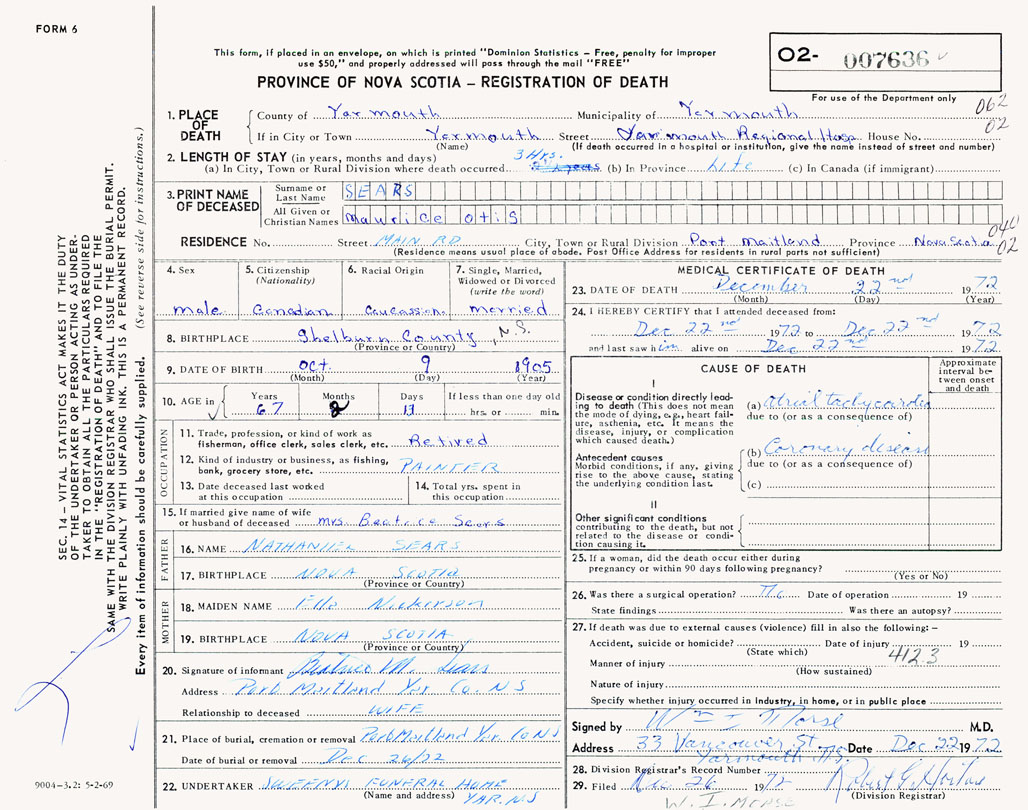 FORM 6
This form, if placed in an envelope, on which is printed "Dominion Statistics – Free, penalty for improper
use $50," and properly addressed will pass through the mail "FREE"
PROVINCE OF NOVA SCOTIA – REGISTRATION OF DEATH
02- 007636
For use of the Department only
062
02
1. PLACE OF DEATH
County of Yarmouth Municipality of Yarmouth
If in City or Town Yarmouth Street Yarmouth Regional Hosp. House No.
(Name) (If death occurred in a hospital or institution, give the name instead of street and number)
2. LENGTH OF STAY (in years, months and days) 3 Hrs.
(a) In City, Town or Rural Division where death occurred (b) In Province Life (c) In Canada (if immigrant)
3. PRINT NAME OF DECEASED
Surname or Last Name SEARS
All Given or Christian Names Maurice otis
040
02
RESIDENCE No. Street MAIN RD City, Town or Rural Division Port Maitland Province Nova Scotia
(Residence means usual place of abode. Post Office Address for residents in rural parts not sufficient)
4. Sex
male
5. Citizenship
(Nationality)
Canadian
6. Racial Origin
Caucassien
7. Single, Married,
Widowed or Divorced
(write the word)
Married
8. BIRTHPLACE Shelburn County, N.S.
(Province or Country)
9. DATE OF BIRTH Oct. 9 1905
(Month) (Day) (Year)
10. AGE in Years Months Days If less than one day old
67 2 13 hrs. or min.
OCCUPATION
11. Trade, profession, or kind of work as
fisherman, office clerk, sales clerk, etc. Retired
12. Kind of industry or business, as fishing,
bank, grocery store, etc. PAINTER
13. Date deceased last worked
at this occupation
14. Total yrs. spent in
this occupation
15. If married give name of wife
or husband of deceased Mrs. Beatrice Sears
FATHER
16. NAME NATHANIEL SEARS
17. BIRTHPLACE NOVA SCOTIA
(Province or Country)
MOTHER
18. MAIDEN NAME Ella Nickerson
19. BIRTHPLACE NOVA SCOTIA
(Province or Country)
20. Signature of informant Beatrice M. Sears
Address Port Maitland Yar. Co. N S
Relationship to deceased WIFE
21. Place of burial, cremation or removal Port Maitland Yar. Co NS
Date of burial or removal Dec 26/72
22. UNDERTAKER SWEENYS FUNERAL HOME
(Name and address) YAR. NS
MEDICAL CERTIFICATE OF DEATH
23. DATE OF DEATH December 22nd 1972
(Month) (Day) (Year)
24. I HEREBY CERTIFY that I attended deceased from:
Dec 22nd 1972 to Dec 22nd 1972
and last saw him alive on Dec 22nd 1972
CAUSE OF DEATH
Approximate
interval be-
tween onset
and death
I
Disease or condition directly lead-
ing to death (This does not mean
the mode of dying, e.g., heart fail-
ure, asthenia, etc. It means the
disease, injury, or complication
which caused death.)
(a) atrial tachycardia
due to (or as a consequence of)
Antecedent causes
Morbid conditions, if any, giving
rise to the above cause, stating
the underlying condition last.
(b) Coronary disease
due to (or as a consequence of)
(c)
II
Other significant conditions
contributing to the death, but not
related to the disease or condi-
tion causing it.
25. If a woman, did the death occur either during
pregnancy or within 90 days following pregnancy?
(Yes or No)
26. Was there a surgical operation? No Date of operation 19
State findings Was there an autopsy?
27. If death was due to external causes (violence) fill in also the following: –
Accident, suicide or homicide? Date of injury 19
(State which) 412.3
Manner of injury
(How sustained)
Nature of injury
Specify whether injury occurred in industry, in home, or in public place
Signed by W I Morse M.D.
Address 33 Vancouver St. Date Dec 22 1972
Yarmouth N.S.
28. Division Registrar's Record Number
29. Filed Dec 26 1972
(Division Registrar)
W. I. MORSE
SEC. 14 – VITAL STATISTICS ACT MAKES IT THE DUTY
OF THE UNDERTAKER OR PERSON ACTING AS UNDER-
TAKER TO OBTAIN ALL THE PARTICULARS REQUIRED
IN THE "REGISTRATION OF DEATH" AND TO FILE THE
SAME WITH THE DIVISION REGISTRAR WHO SHALL ISSUE THE BURIAL PERMIT.
WRITE PLAINLY WITH UNFADING INK. THIS IS A PERMANENT RECORD.
Every item of information should be carefully supplied. (See reverse side for instructions.)
9004-3.2: 5-2-69